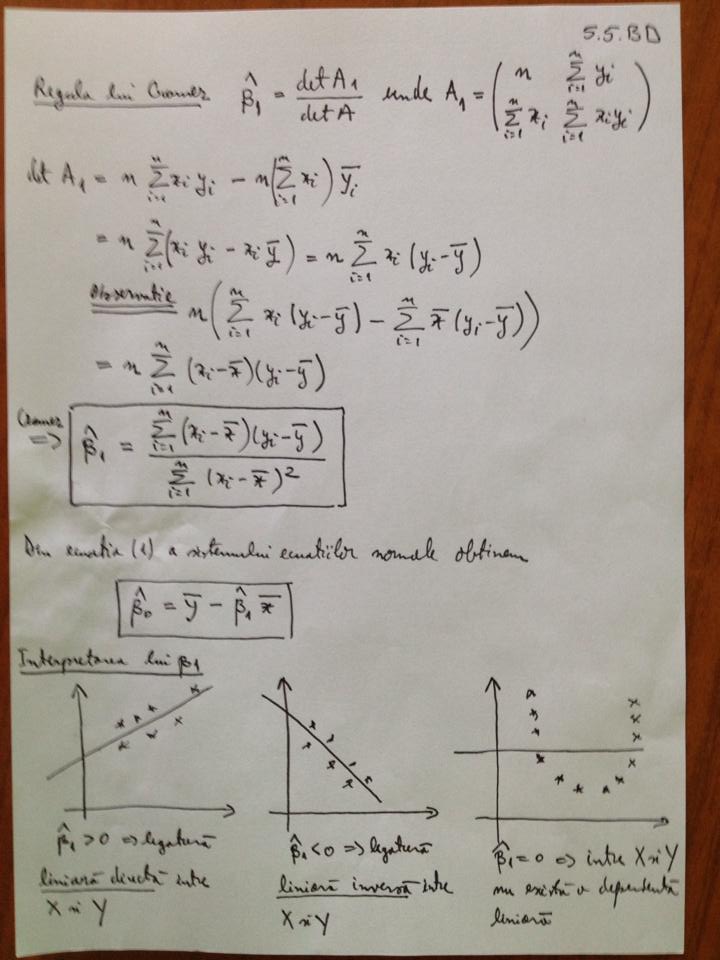 5.5.BD
Regula lui Cramer β̂₁ = det A₁ / det A unde A₁ = ( n  Σⁿᵢ₌₁ yᵢ ; Σⁿᵢ₌₁ xᵢ  Σⁿᵢ₌₁ xᵢyᵢ )
det A₁ = n Σⁿᵢ₌₁ xᵢ yᵢ − n(Σⁿᵢ₌₁ xᵢ) ȳᵢ
= n Σⁿᵢ₌₁ (xᵢ yᵢ − xᵢ ȳ) = n Σⁿᵢ₌₁ xᵢ (yᵢ − ȳ)
Observatie n(Σⁿᵢ₌₁ xᵢ (yᵢ − ȳ) − Σⁿᵢ₌₁ x̄ (yᵢ − ȳ))
= n Σⁿᵢ₌₁ (xᵢ − x̄)(yᵢ − ȳ)
Cramer
=> β̂₁ = Σⁿᵢ₌₁ (xᵢ − x̄)(yᵢ − ȳ) / Σⁿᵢ₌₁ (xᵢ − x̄)²
Din ecuatia (1) a sistemului ecuatiilor normale obtinem
β̂₀ = ȳ − β̂₁ x̄
Interpretarea lui β₁
β̂₁ > 0 => legatură
liniară directă intre
X si Y
β̂₁ < 0 => legatură
liniară inversă intre
X si Y
β̂₁ = 0 => intre X si Y
nu există o dependentă
liniară